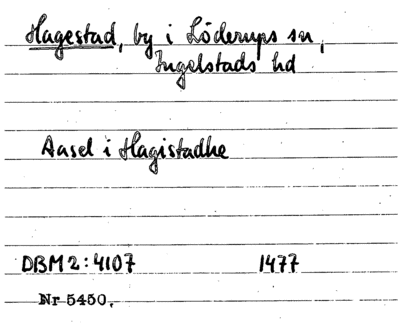 Hagestad, by i Löderups sn,
Ingelstads hd
Aasel i Hagistadhe
DBM2:4107 1477
Nr 5450.